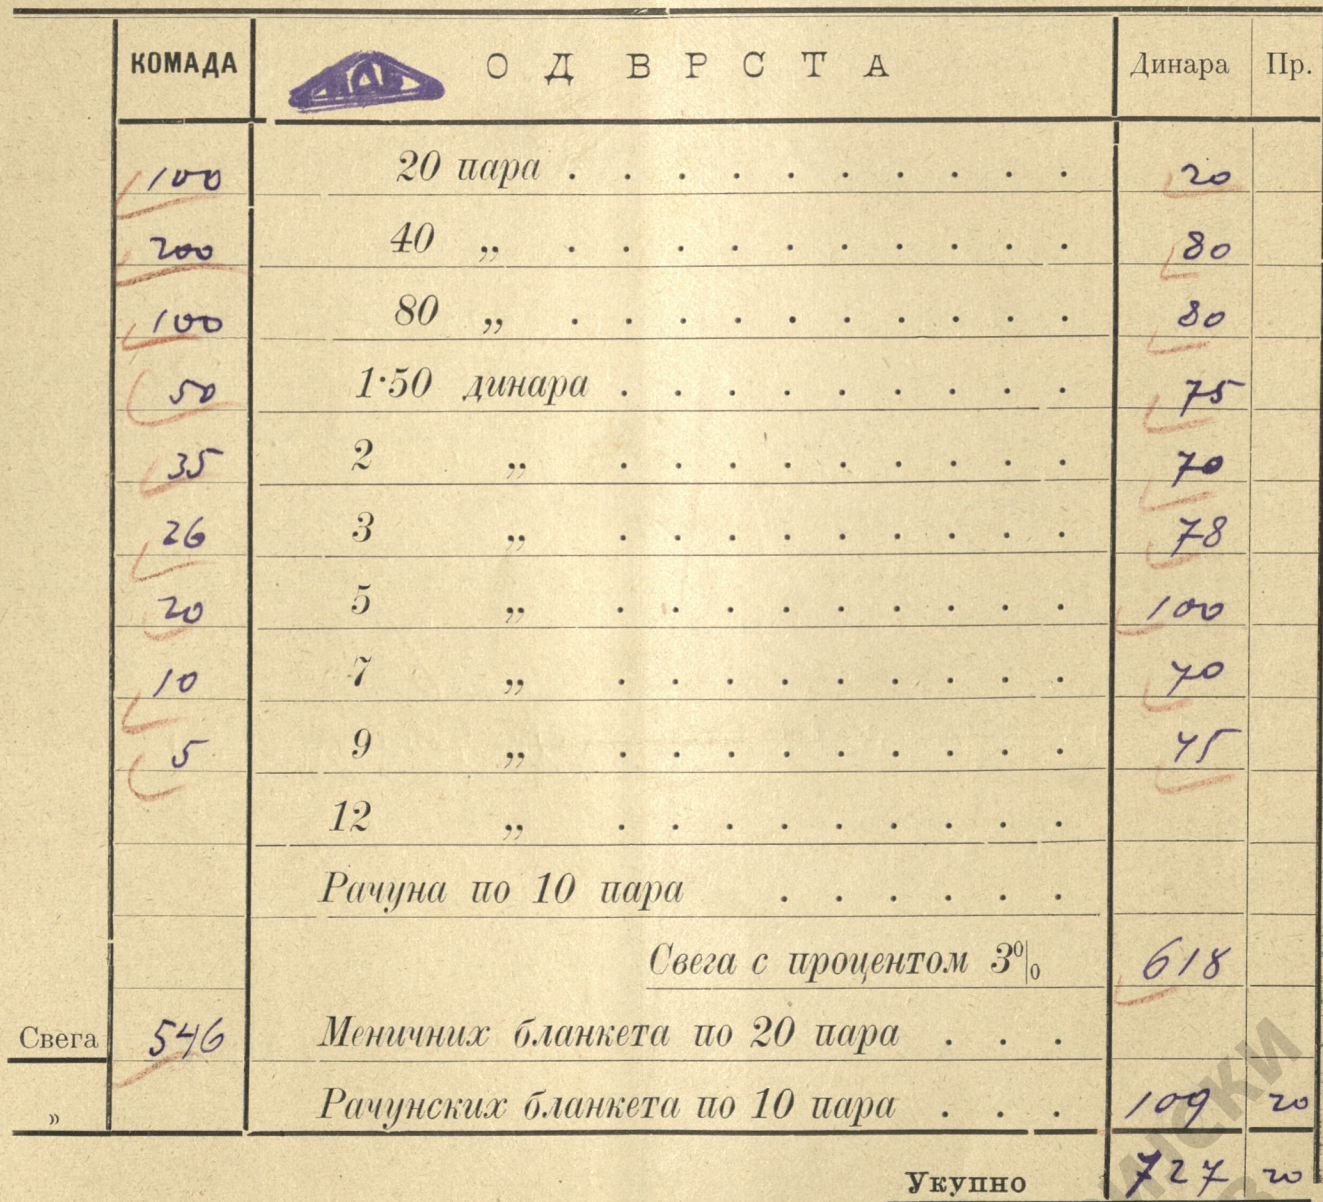 КОМАДА ОД ВРСТА Динара Пр.
100 20 пара . . . . . . . . . . 20
200 40 „ . . . . . . . . . . 80
100 80 „ . . . . . . . . . . 80
50 1·50 динара . . . . . . . . . 75
35 2 „ . . . . . . . . . 70
26 3 „ . . . . . . . . . 78
20 5 „ . . . . . . . . . 100
10 7 „ . . . . . . . . . 70
5 9 „ . . . . . . . . . 45
12 „ . . . . . . . . .
Рачуна по 10 пара . . . . . .
Свега с процентом 3% 618
Свега 546 Меничних бланкета по 20 пара . . .
„ Рачунских бланкета по 10 пара . . . 109 20
Укупно 727 20